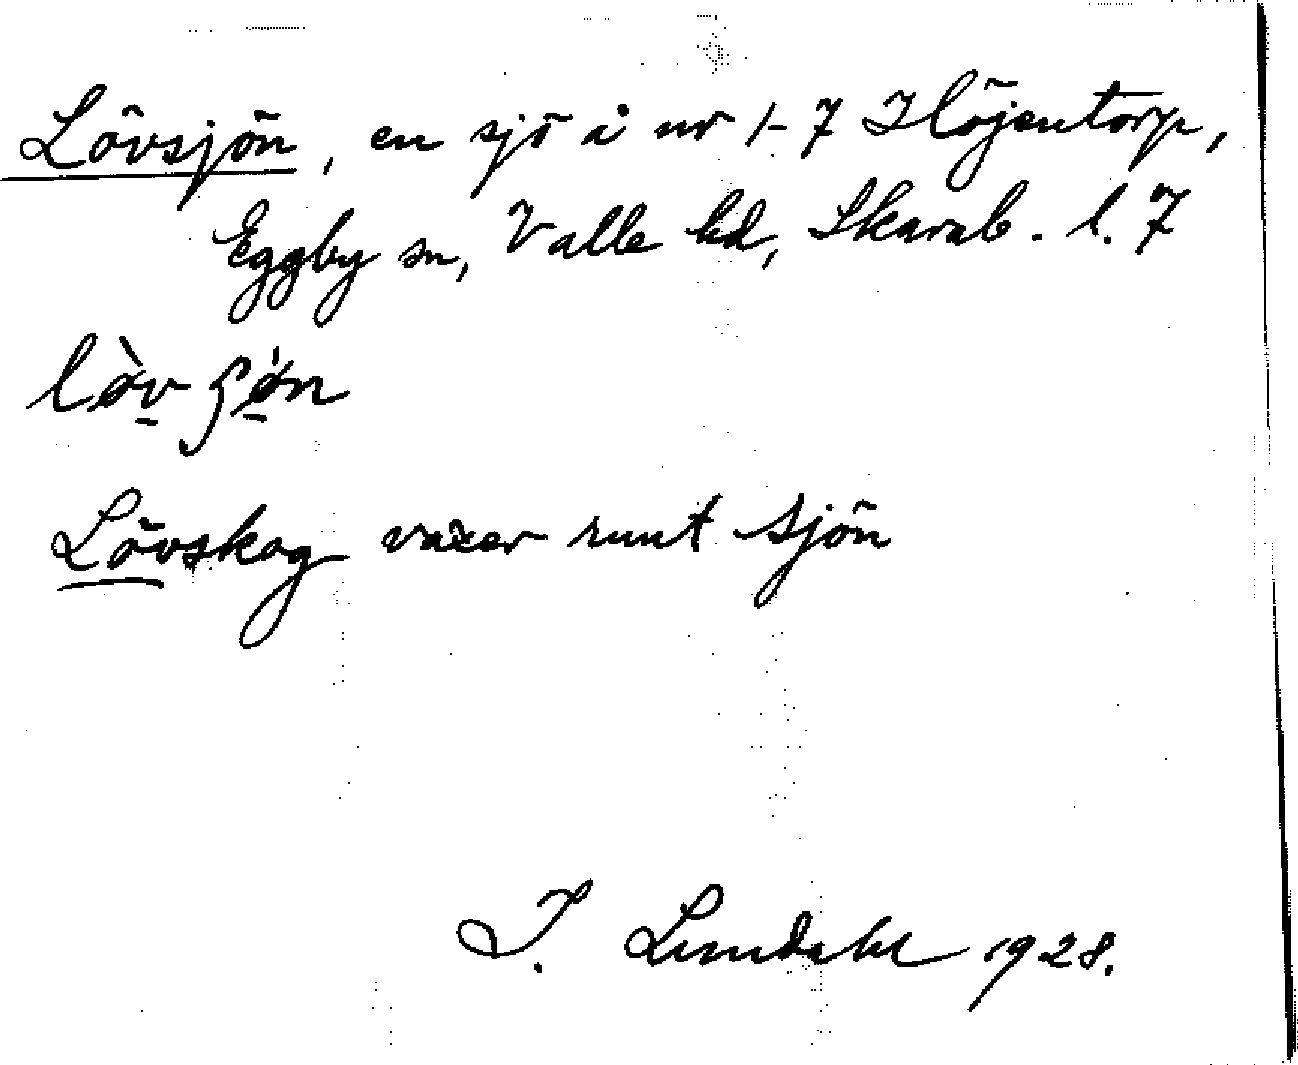 Lövsjön, en sjö å nr 1-7 Höjentorp,
Eggby sn, Valle hd, Skarab. l. 7
lòv ʂön
Lövskog växer runt sjön
I. Lundahl 1928.